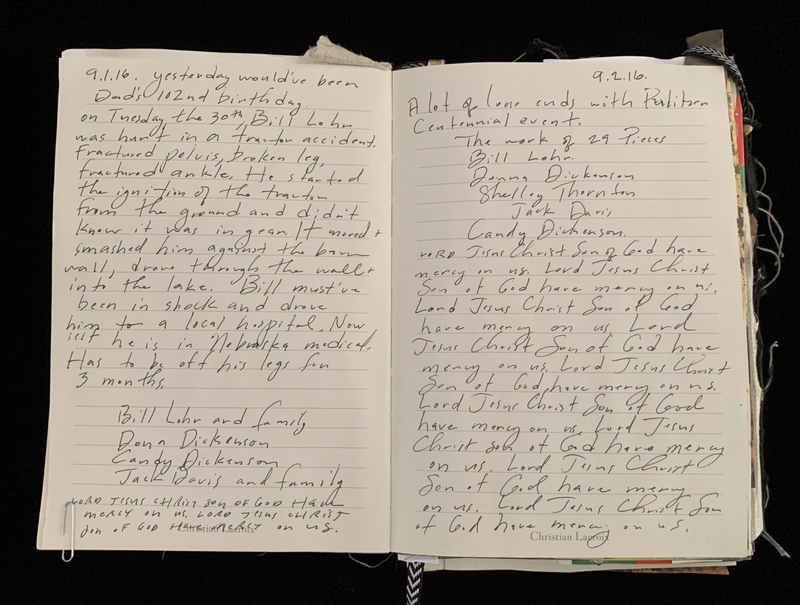 9.1.16. yesterday would've been
Dad's 102nd birthday.
on Tuesday the 30th, Bill Lohr
was hurt in a tractor accident.
Fractured pelvis, broken leg,
fractured ankle. He started
the ignition of the tractor
from the ground and didn't
know it was in gear. It moved +
smashed him against the barn
wall, drove through the wall +
into the lake. Bill must've
been in shock and drove
him to a local hospital. Now
self he is in Nebraska medical.
Has to be off his legs for
3 months.
Bill Lohr and family
Dona Dickenson
Candy Dickenson
Jack Davis and family
LORD JESUS CHRIST SON OF GOD HAVE
MERCY ON US. LORD JESUS CHRIST
SON OF GOD HAVE MERCY ON US.
Christian Lacroix
9.2.16.
A lot of loose ends with Pulitzer
Centennial event.
The work of 29 Pieces
Bill Lohr.
Donna Dickenson
Shelley Thornton
Jack Davis
Candy Dickenson.
LORD Jesus Christ Son of God have
mercy on us. Lord Jesus Christ
Son of God have mercy on us.
Lord Jesus Christ Son of God
have mercy on us. Lord
Jesus Christ Son of God have
mercy on us. Lord Jesus Christ
Son of God, have mercy on us.
Lord Jesus Christ Son of God
have mercy on us. Lord Jesus
Christ Son of God have mercy
on us. Lord Jesus Christ
Son of God have mercy
on us. Lord Jesus Christ Son
of God have mercy on us.
Christian Lacroix